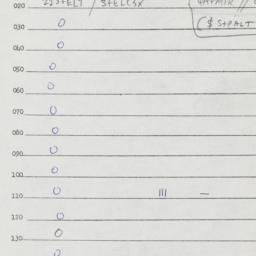 020
030 0
($ STPALT
040 0
050 0
060 0
070 0
080 0
090 0
100 0
110 0 III —
110 0
130 0
0